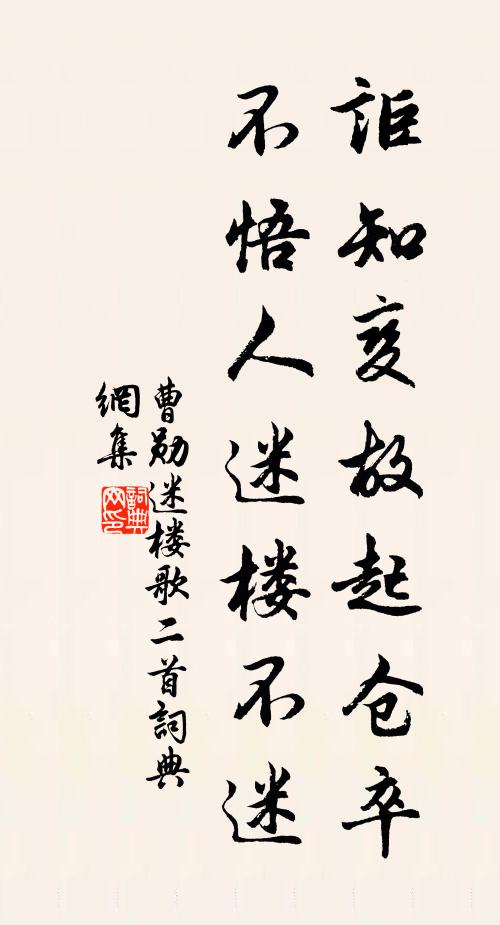 讵知变故起仓卒
不悟人迷楼不迷
曹勋迷楼歌二首詞典
網集
詞典网印